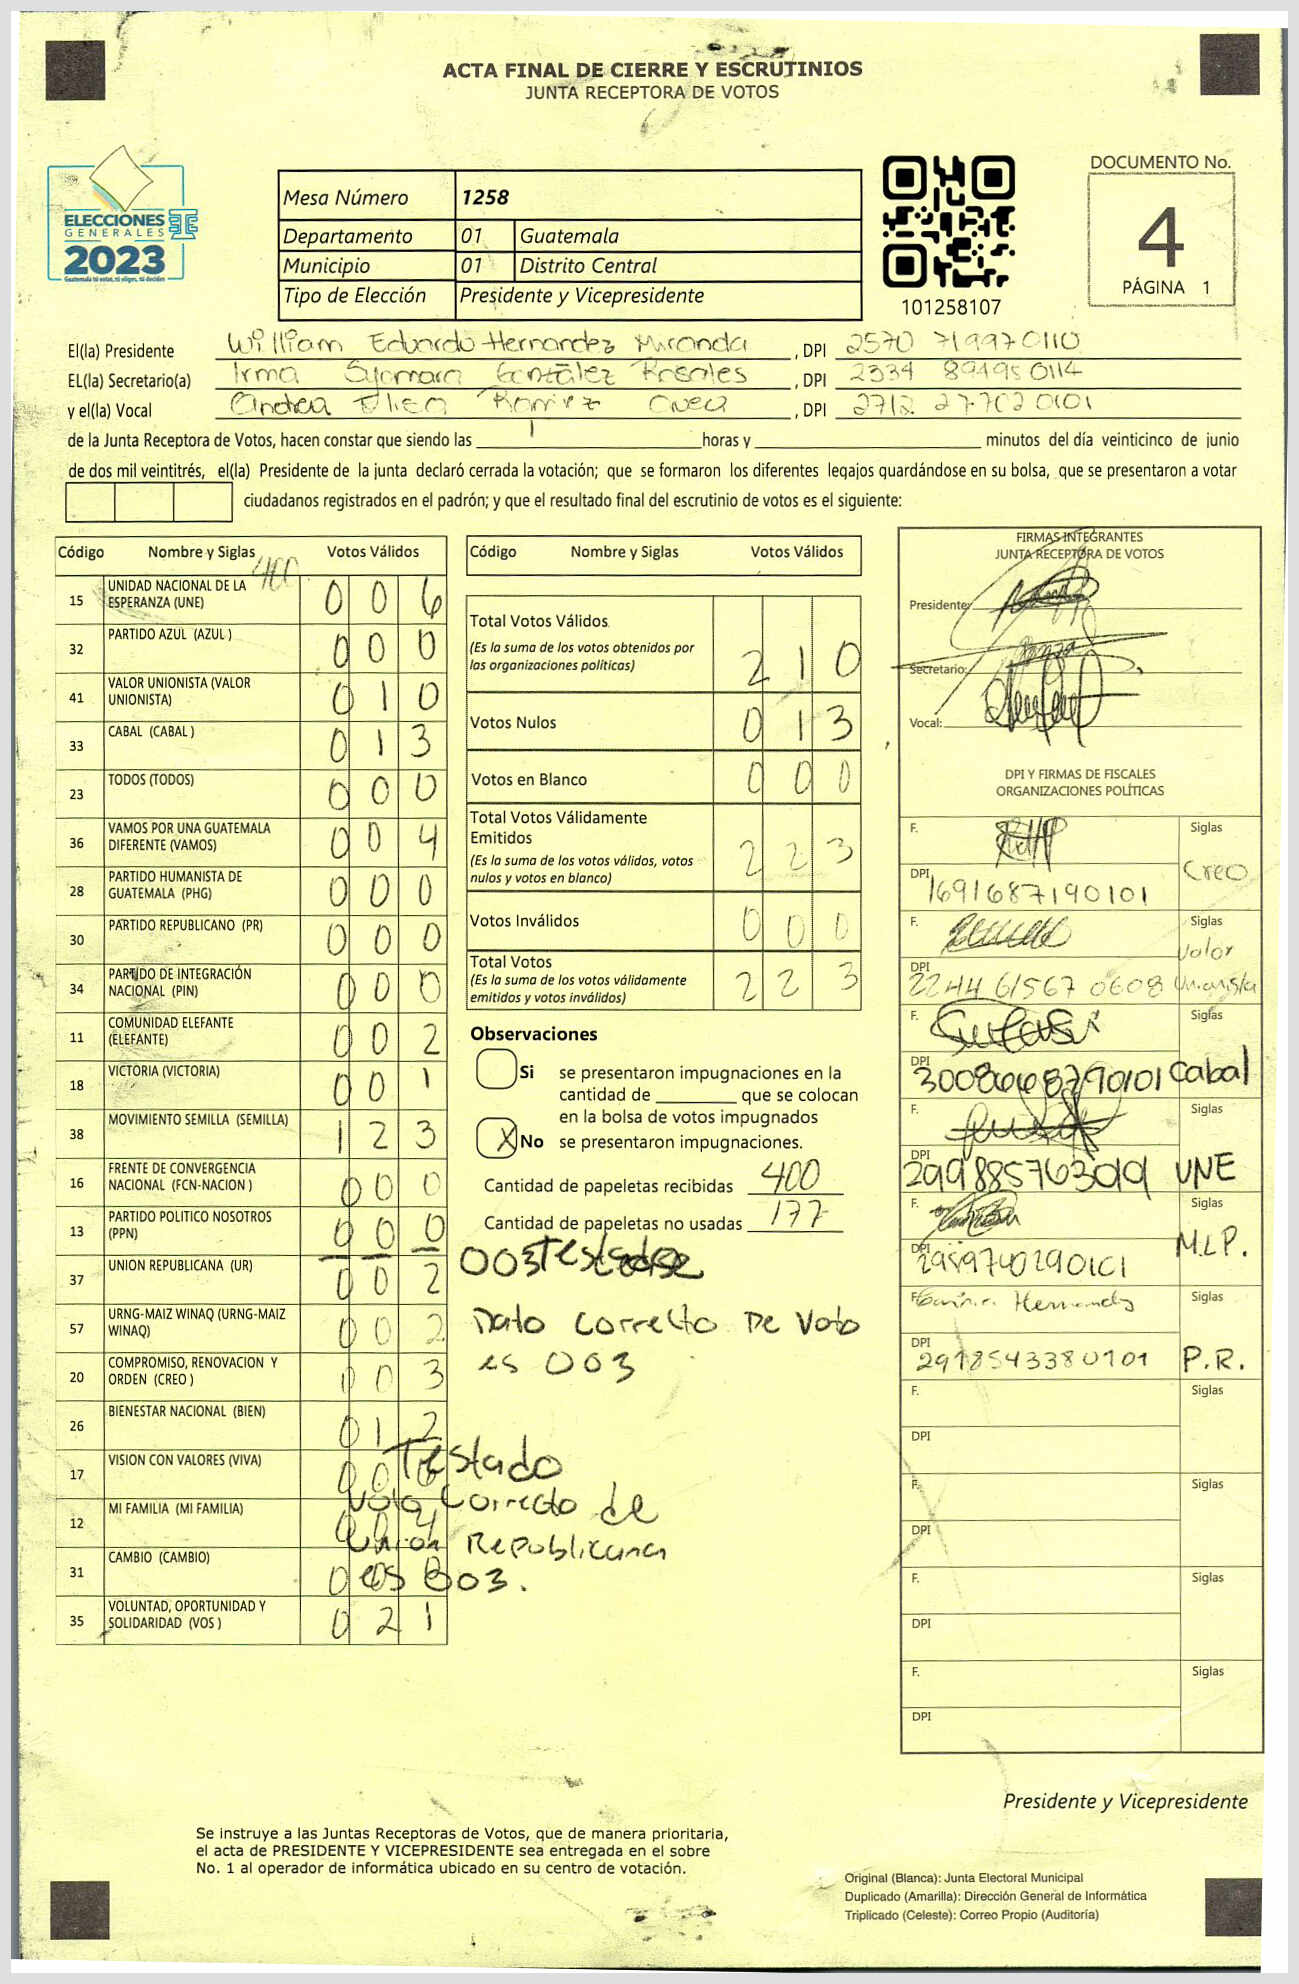 ACTA FINAL DE CIERRE Y ESCRUTINIOS
JUNTA RECEPTORA DE VOTOS
ELECCIONES
GENERALES
2023
Guatemala tú votas, tú eliges, tú decides
Mesa Número 1258
Departamento 01 Guatemala
Municipio 01 Distrito Central
Tipo de Elección Presidente y Vicepresidente
101258107
DOCUMENTO No.
4
PÁGINA 1
El(la) Presidente William Eduardo Hernandez Miranda , DPI 2570 719970110
EL(la) Secretario(a) Irma Syomara González Rosales , DPI 2334 891950114
y el(la) Vocal Andrea Ramirez , DPI 2712 277020101
de la Junta Receptora de Votos, hacen constar que siendo las horas y minutos del día veinticinco de junio
de dos mil veintitrés, el(la) Presidente de la junta declaró cerrada la votación; que se formaron los diferentes legajos quardándose en su bolsa, que se presentaron a votar
ciudadanos registrados en el padrón; y que el resultado final del escrutinio de votos es el siguiente:
Código Nombre y Siglas Votos Válidos
400
15 UNIDAD NACIONAL DE LA ESPERANZA (UNE) 0 0 6
32 PARTIDO AZUL (AZUL ) 0 0 0
41 VALOR UNIONISTA (VALOR UNIONISTA) 0 1 0
33 CABAL (CABAL ) 0 1 3
23 TODOS (TODOS) 0 0 0
36 VAMOS POR UNA GUATEMALA DIFERENTE (VAMOS) 0 0 4
28 PARTIDO HUMANISTA DE GUATEMALA (PHG) 0 0 0
30 PARTIDO REPUBLICANO (PR) 0 0 0
34 PARTIDO DE INTEGRACIÓN NACIONAL (PIN) 0 0 0
11 COMUNIDAD ELEFANTE (ELEFANTE) 0 0 2
18 VICTORIA (VICTORIA) 0 0 1
38 MOVIMIENTO SEMILLA (SEMILLA) 1 2 3
16 FRENTE DE CONVERGENCIA NACIONAL (FCN-NACION ) 0 0 0
13 PARTIDO POLITICO NOSOTROS (PPN) 0 0 0
37 UNION REPUBLICANA (UR) 0 0 2
57 URNG-MAIZ WINAQ (URNG-MAIZ WINAQ) 0 0 2
20 COMPROMISO, RENOVACION Y ORDEN (CREO ) 0 0 3
26 BIENESTAR NACIONAL (BIEN) 0 1 2
17 VISION CON VALORES (VIVA) 0 0
12 MI FAMILIA (MI FAMILIA) 0
31 CAMBIO (CAMBIO) 0
35 VOLUNTAD, OPORTUNIDAD Y SOLIDARIDAD (VOS ) 0 2 1
Testado
Voto Correcto de
Unión Republicana
es 003.
Código Nombre y Siglas Votos Válidos
Total Votos Válidos 2 1 0
(Es la suma de los votos obtenidos por
las organizaciones políticas)
Votos Nulos 0 1 3
Votos en Blanco 0 0 0
Total Votos Válidamente
Emitidos 2 2 3
(Es la suma de los votos válidos, votos
nulos y votos en blanco)
Votos Inválidos 0 0 0
Total Votos 2 2 3
(Es la suma de los votos válidamente
emitidos y votos inválidos)
Observaciones
Si se presentaron impugnaciones en la
cantidad de que se colocan
en la bolsa de votos impugnados
X No se presentaron impugnaciones.
Cantidad de papeletas recibidas 400
Cantidad de papeletas no usadas 177
003
Dato correcto De Voto
es 003
FIRMAS INTEGRANTES
JUNTA RECEPTORA DE VOTOS
Presidente:
Secretario:
Vocal:
DPI Y FIRMAS DE FISCALES
ORGANIZACIONES POLÍTICAS
F. Siglas
Creo
DPI 1691687190101
F. Siglas
Valor
Unionista
DPI 2244 61567 0608
F. Siglas
DPI 3008668790101 Cabal
F. Siglas
DPI UNE
F. Siglas
DPI M.L.P.
F. Hernandez Siglas
DPI 2918543380101 P.R.
F. Siglas
DPI
F. Siglas
DPI
F. Siglas
DPI
F. Siglas
DPI
Presidente y Vicepresidente
Se instruye a las Juntas Receptoras de Votos, que de manera prioritaria,
el acta de PRESIDENTE Y VICEPRESIDENTE sea entregada en el sobre
No. 1 al operador de informática ubicado en su centro de votación.
Original (Blanca): Junta Electoral Municipal
Duplicado (Amarilla): Dirección General de Informática
Triplicado (Celeste): Correo Propio (Auditoría)